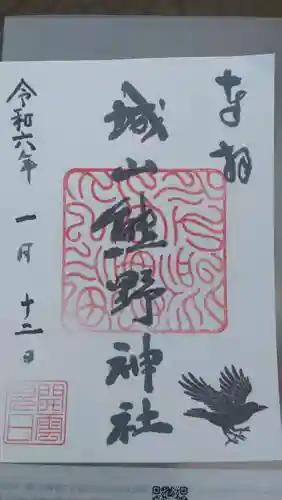 奉拝
城山熊野神社
令和六年
一月
十二日